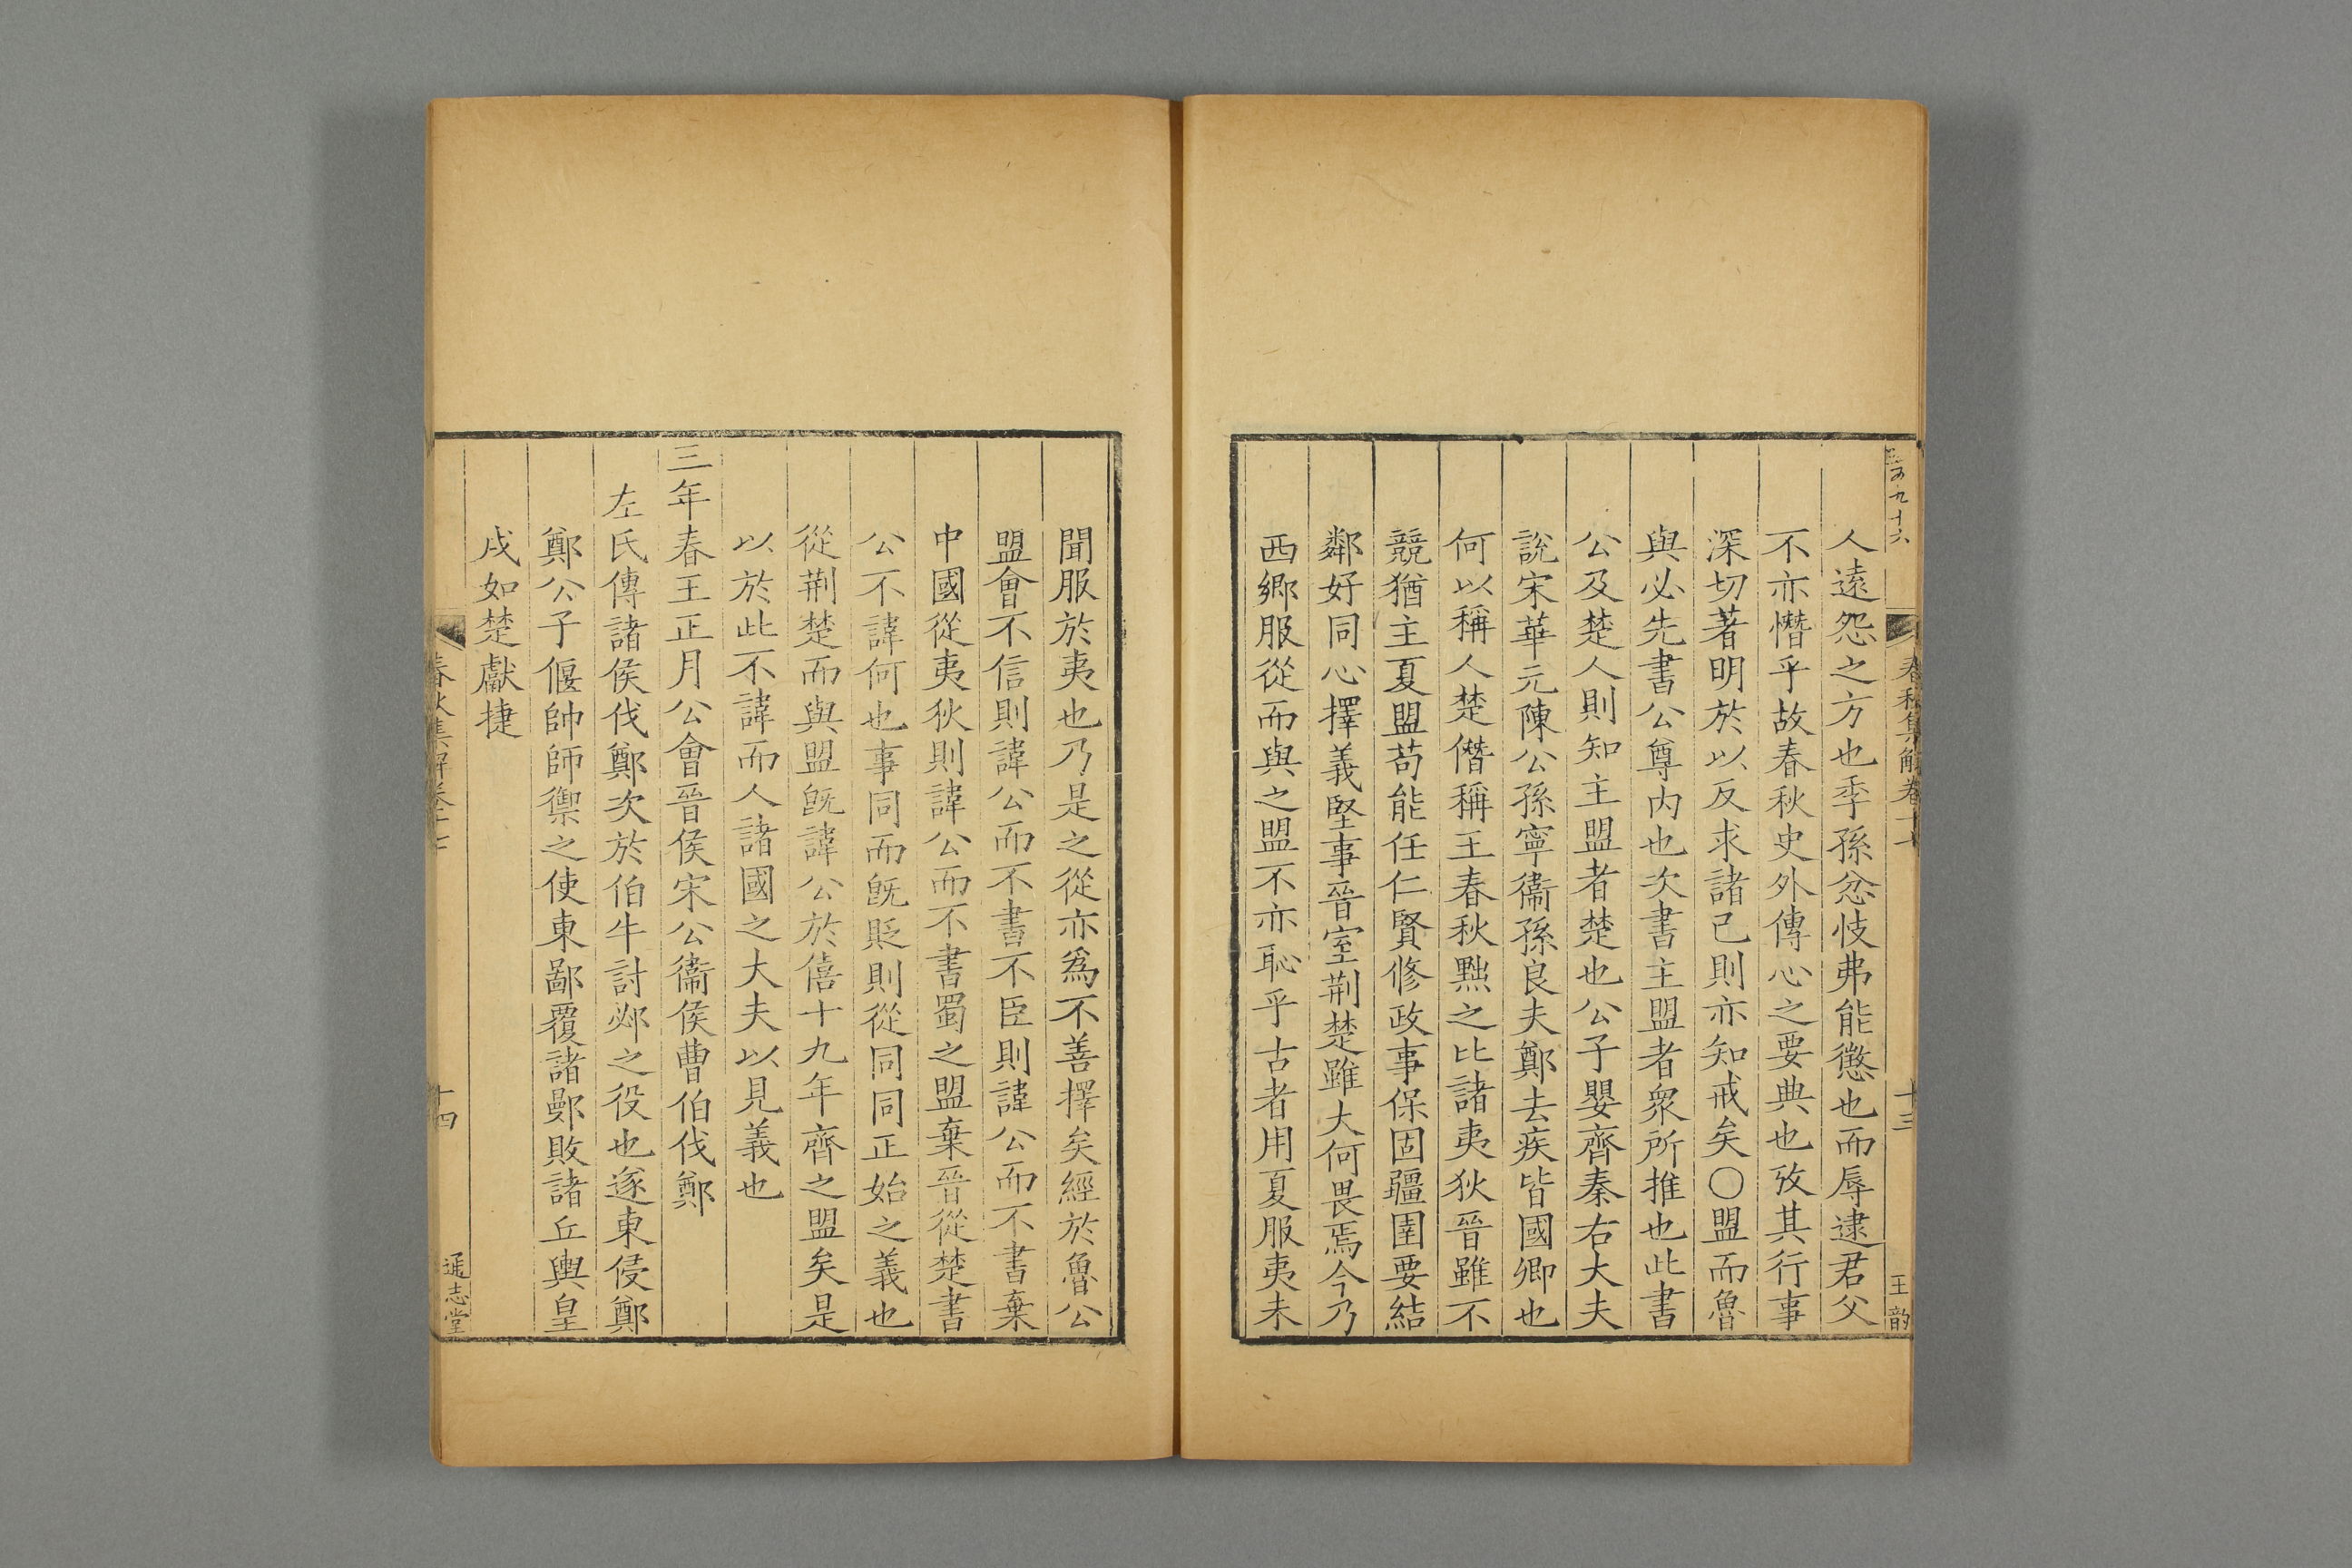 人遠怨之方也季孫忿忮弗能懲也而辱逮君父
不亦憯乎故春秋史外傳心之要典也攷其行事
深切著明於以反求諸己則亦知戒矣○盟而魯
與必先書公尊内也次書主盟者衆所推也此書
公及楚人則知主盟者楚也公子嬰齊秦右大夫
說宋華元陳公孫寧衞孫良夫鄭去疾皆國卿也
何以稱人楚僭稱王春秋黜之比諸夷狄晉雖不
競猶主夏盟苟能任仁賢修政事保固疆圉要結
鄰好同心擇義堅事晉室荆楚雖大何畏焉今乃
西鄉服從而與之盟不亦恥乎古者用夏服夷未
春秋集解卷十七
十三
王韵
聞服於夷也乃是之從亦爲不善擇矣經於魯公
盟會不信則諱公而不書不臣則諱公而不書棄
中國從夷狄則諱公而不書蜀之盟棄晉從楚書
公不諱何也事同而旣貶則從同同正始之義也
從荆楚而與盟旣諱公於僖十九年齊之盟矣是
以於此不諱而人諸國之大夫以見義也
三年春王正月公會晉侯宋公衞侯曹伯伐鄭
左氏傳諸侯伐鄭次於伯牛討邲之役也遂東侵鄭
鄭公子偃帥師禦之使東鄙覆諸鄤敗諸丘輿皇
戌如楚獻捷
春秋集解卷十七
十四
通志堂